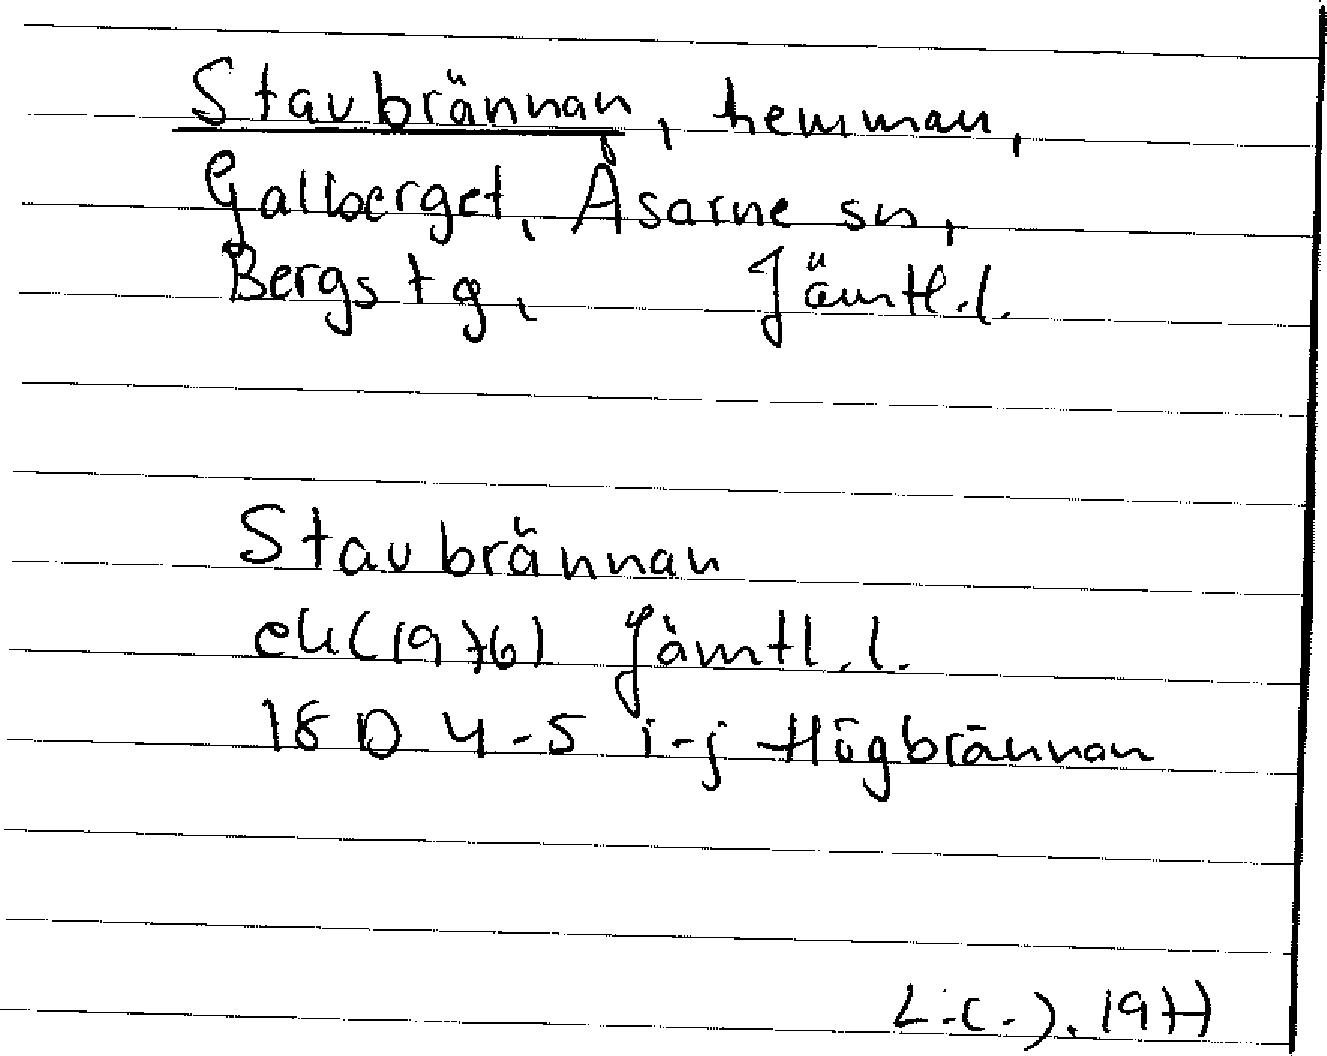 Stavbrännan, hemman,
Galberget, Åsarne sn,
Bergs tg, Jämtl.l.
Stavbrännan
ek(1976) Jämtl.l.
18 D 4-5 i-j Högbrännan